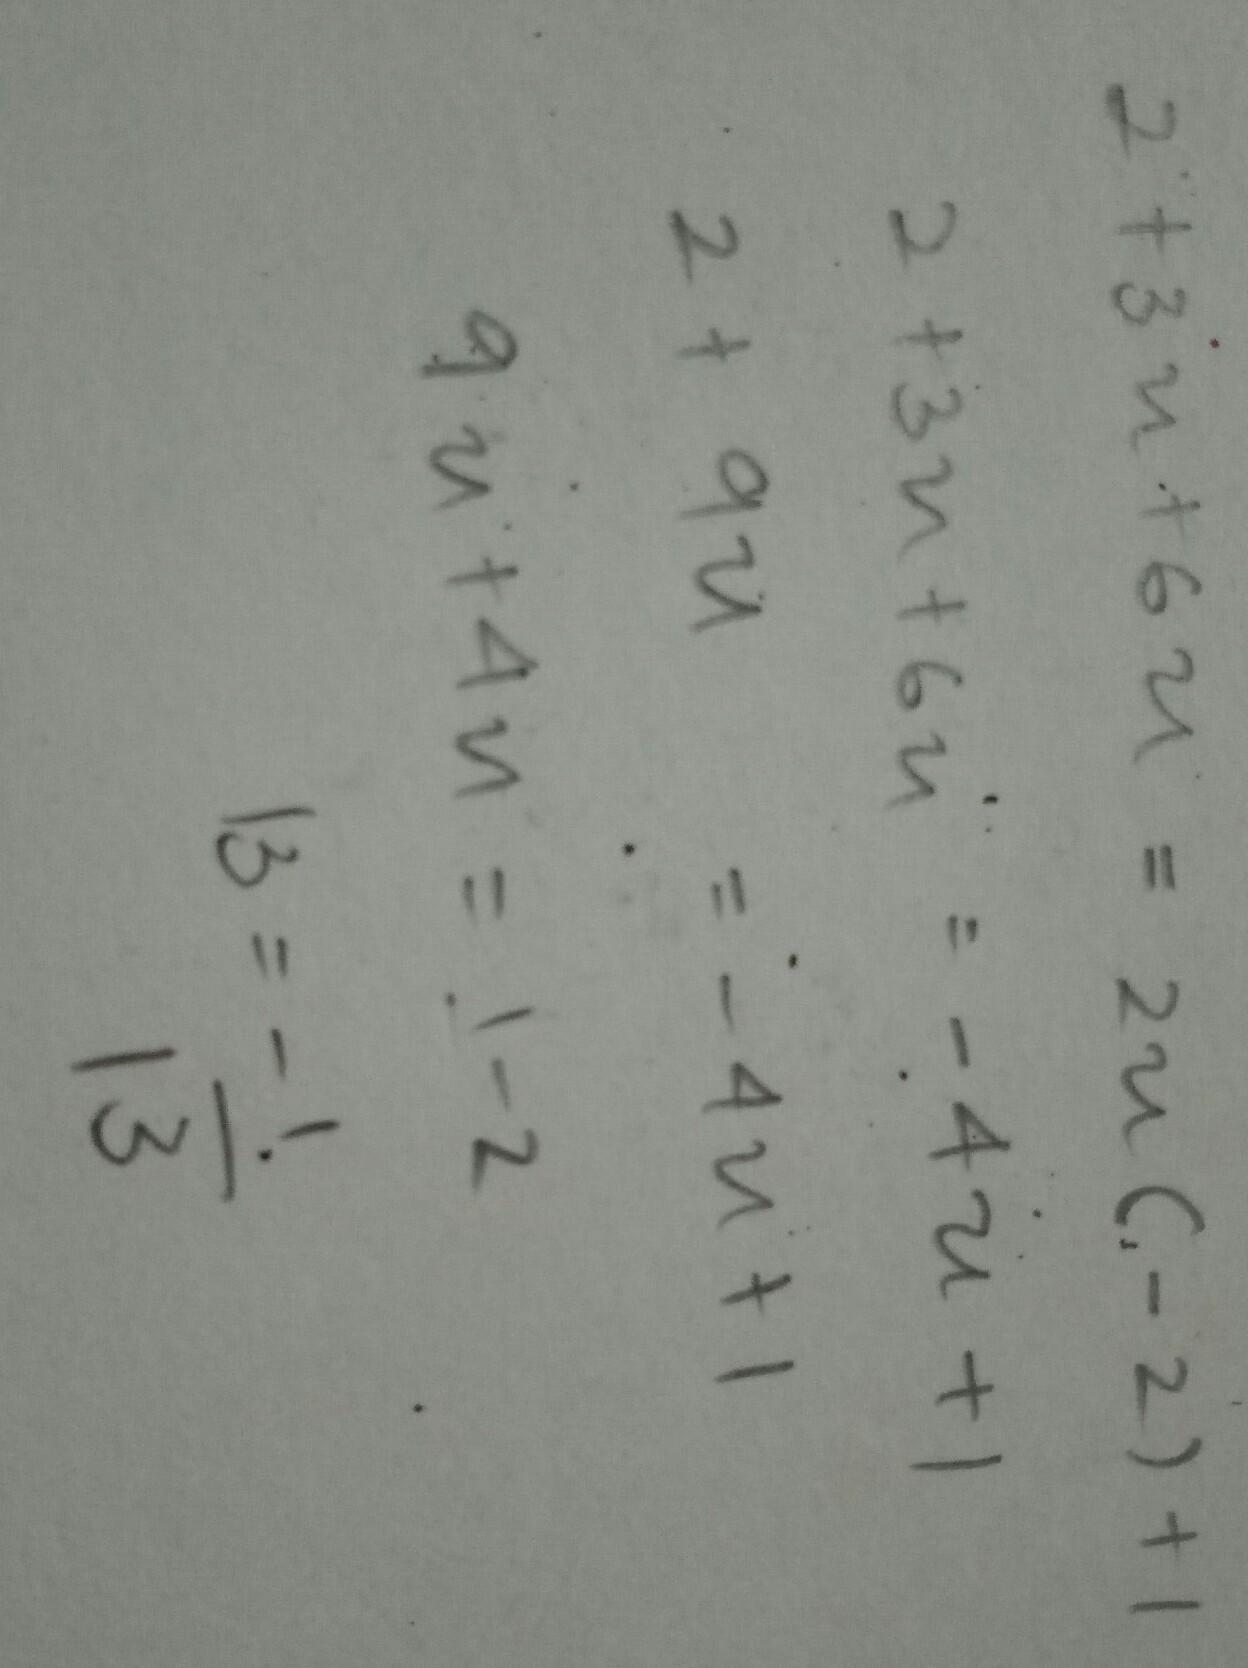 2+3x+6x = 2x(-2)+1
2+3x+6x = -4x+1
2+9x = -4x+1
9x+4x = 1-2
13 = -1/13